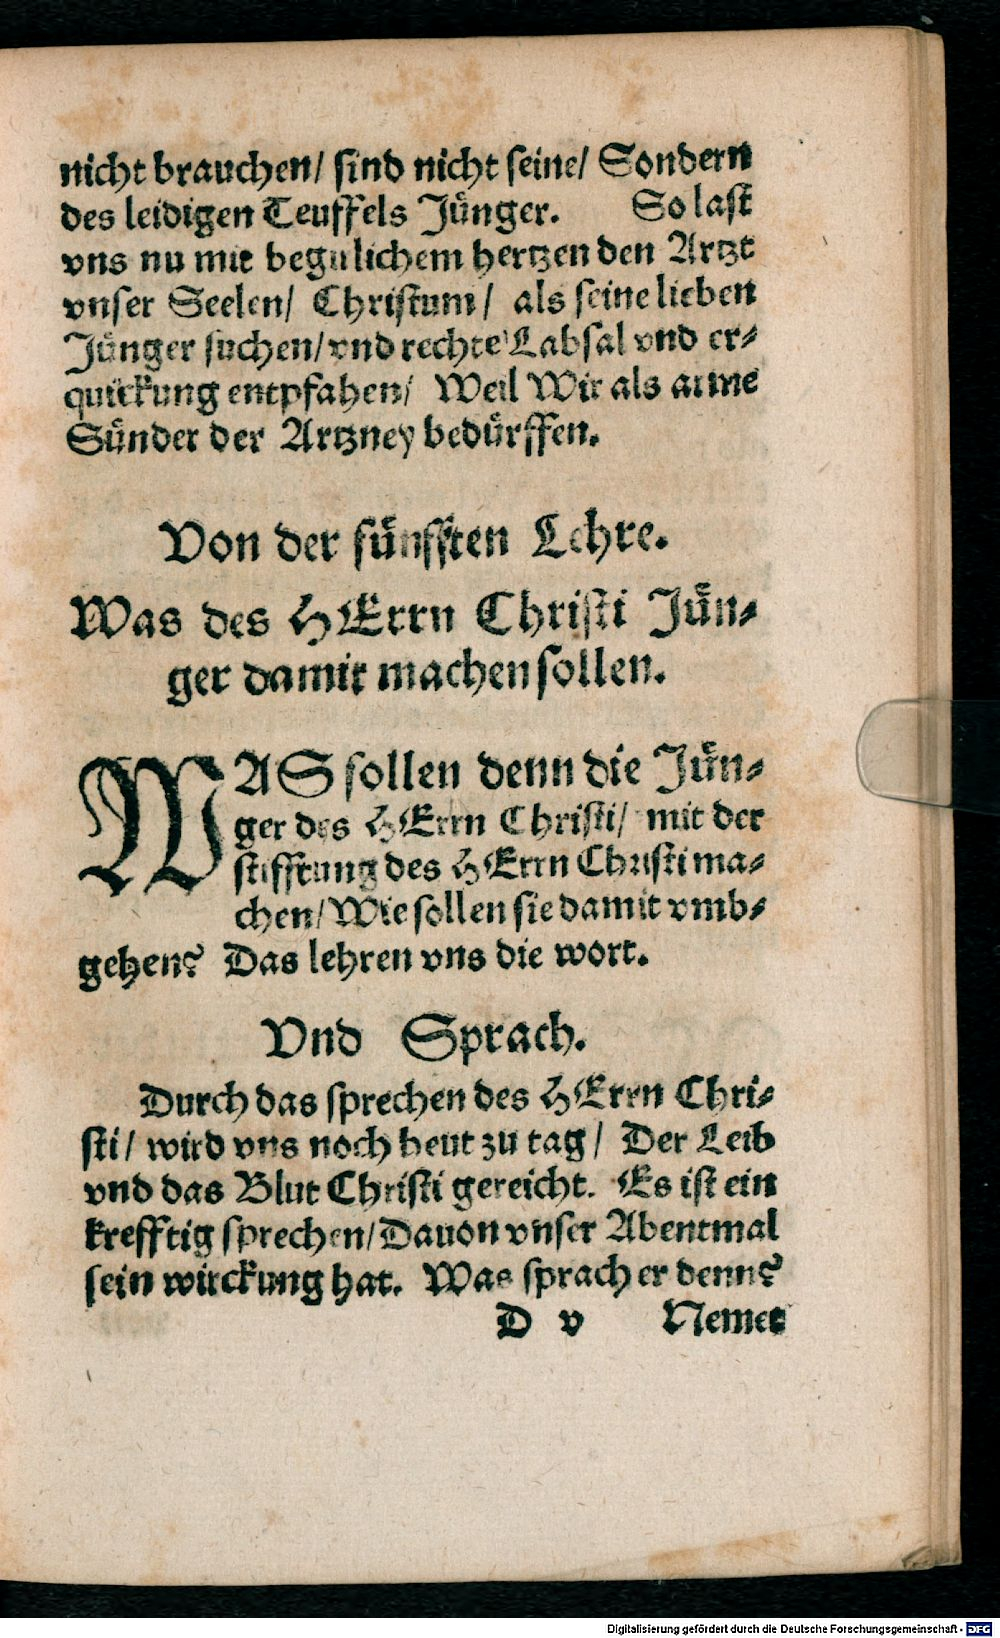 nicht brauchen/ sind nicht seine/ Sondern
des leidigen Teuffels Jünger. So last
vns nu mit begirlichem hertzen den Artzt
vnser Seelen/ Christum/ als seine lieben
Jünger suchen/ vnd rechte Labsal vnd er-
quickung entpfahen/ Weil Wir als arme
Sünder der Artzney bedürffen.
Von der fünfften Lehre.
Was des HErrn Christi Jün-
ger damit machen sollen.
WAS sollen denn die Jün-
ger des HErrn Christi/ mit der
stifftung des HErrn Christi ma-
chen/ Wie sollen sie damit vmb-
gehen? Das lehren vns die wort.
Vnd Sprach.
Durch das sprechen des HErrn Chri-
sti/ wird vns noch heut zu tag/ Der Leib
vnd das Blut Christi gereicht. Es ist ein
krefftig sprechen/ Dauon vnser Abentmal
sein wirckung hat. Was sprach er denn?
D v Nemet
Digitalisierung gefördert durch die Deutsche Forschungsgemeinschaft - DFG